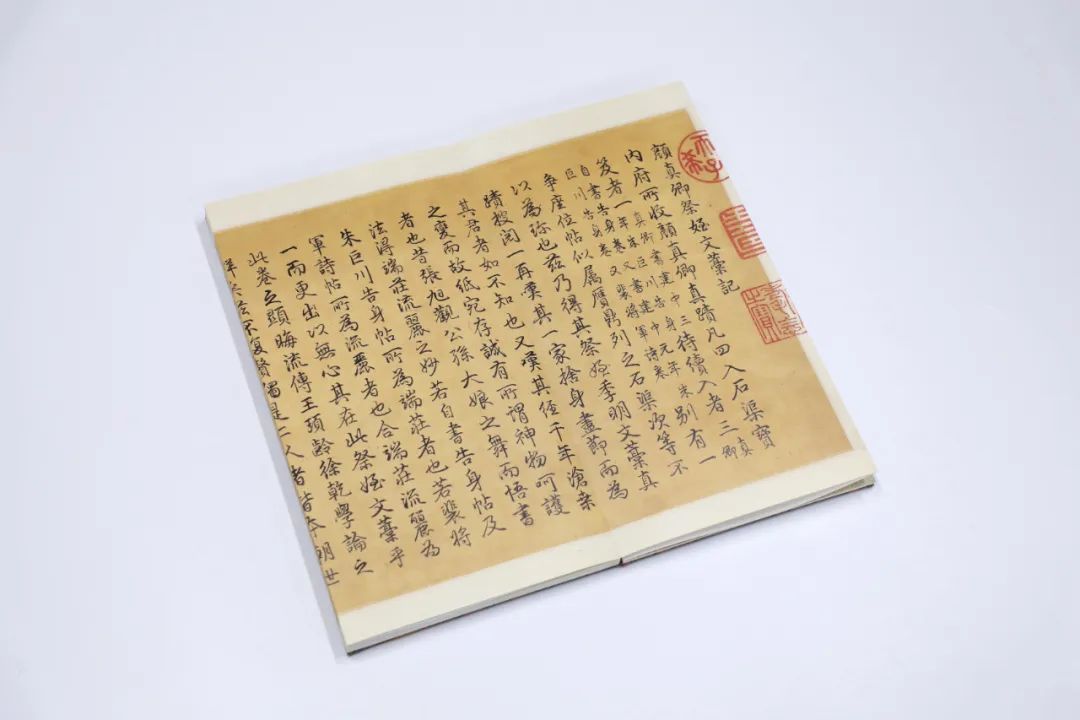 顏真卿祭姪文藁記
內府所收顏真卿真蹟凡四入石渠寶
笈者一待續入者三真卿
自書告身卷又裴將軍詩卷
別有一
爭座位帖似屬贗鼎列之石渠次等不
以為珍也茲乃得其祭姪季明文藁真
蹟搜閱一再其一家捨身盡節而為
其君者如不知也又其經千年滄桒
之變而故紙宛存誠有所謂神物呵護
者也昔張旭觀公孫大娘之舞而悟書
法得端莊流麗之妙若自書告身帖及
朱巨川告身帖所為端莊者也若裴將
軍詩帖所為流麗者也合端莊流麗為
一而更出以無心其在此祭姪文藁乎
此卷之顕晦流傳王頊齡徐乾學論之
詳矣茲不復贅獨是二人者皆本朝世